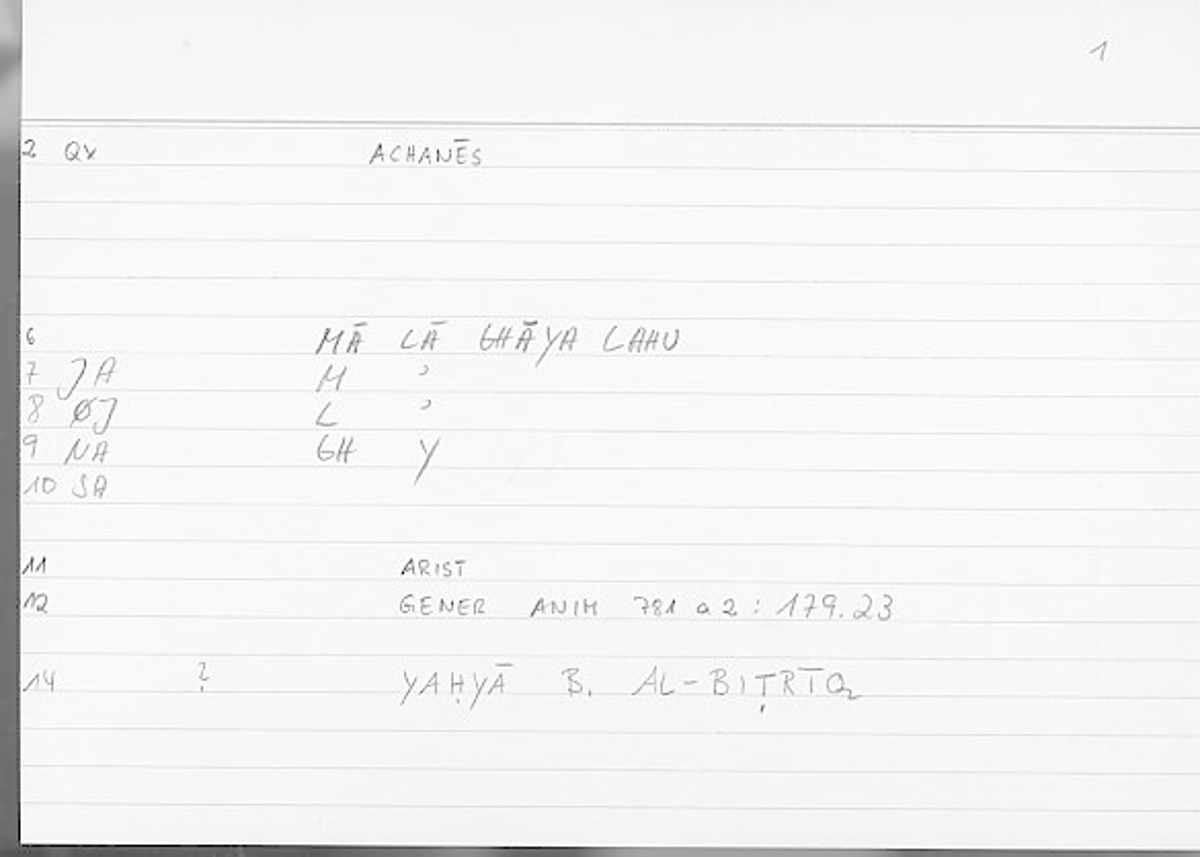 1
2 QV ACHANĒS
6 MĀ LĀ GHĀYA LAHU
7 JA M ʾ
8 ØJ L ʾ
9 NA GH Y
10 SA
11 ARIST
12 GENER ANIM 781 a 2 : 179.23
14 ? YAḤYĀ B. AL-BIṬRĪQ